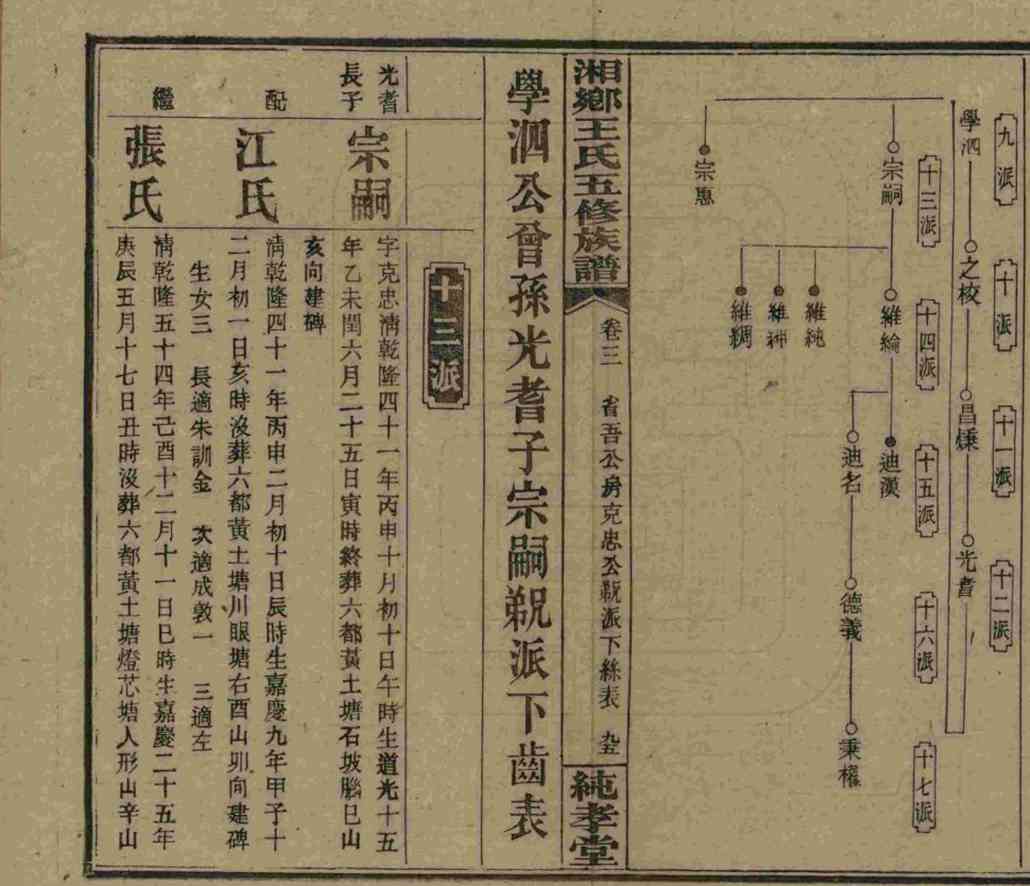 九派
學泗
十派
之校
十一派
昌㷂
十二派
光耆
十三派
宗嗣
宗惠
十四派
維綸
維純
維神
維綢
十五派
迪漢
迪名
十六派
德義
十七派
秉權
湘鄉王氏五修族譜
卷三
省吾公房克忠公派下絲表
九五
純孝堂
學泗公曾孫光耆子宗嗣派下齒表
十三派
光耆
長子
宗嗣
字克忠淸乾隆四十一年丙申十月初十日午時生道光十五
年乙未閏六月二十五日寅時終葬六都黃土塘石坡𡺚巳山
亥向建碑
配
江氏
淸乾隆四十一年丙申二月初十日辰時生嘉慶九年甲子十
二月初一日亥時沒葬六都黃土塘川眼塘右酉山卯向建碑
生女三 長適朱訓金 次適成敦一 三適左
繼
張氏
淸乾隆五十四年己酉十二月十一日巳時生嘉慶二十五年
庚辰五月十七日丑時沒葬六都黃土塘燈芯塘人形山辛山